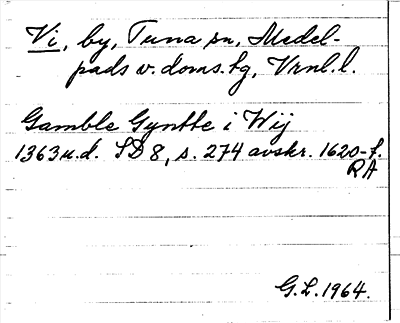 Vi, by, Tuna sn, Medel-
pads v. doms.hg, Vrnl. l.
Gamble Gynthe i Wij
1363 u.d. SD 8, s. 274 avskr. 1620-t.
RA
G.L. 1964.